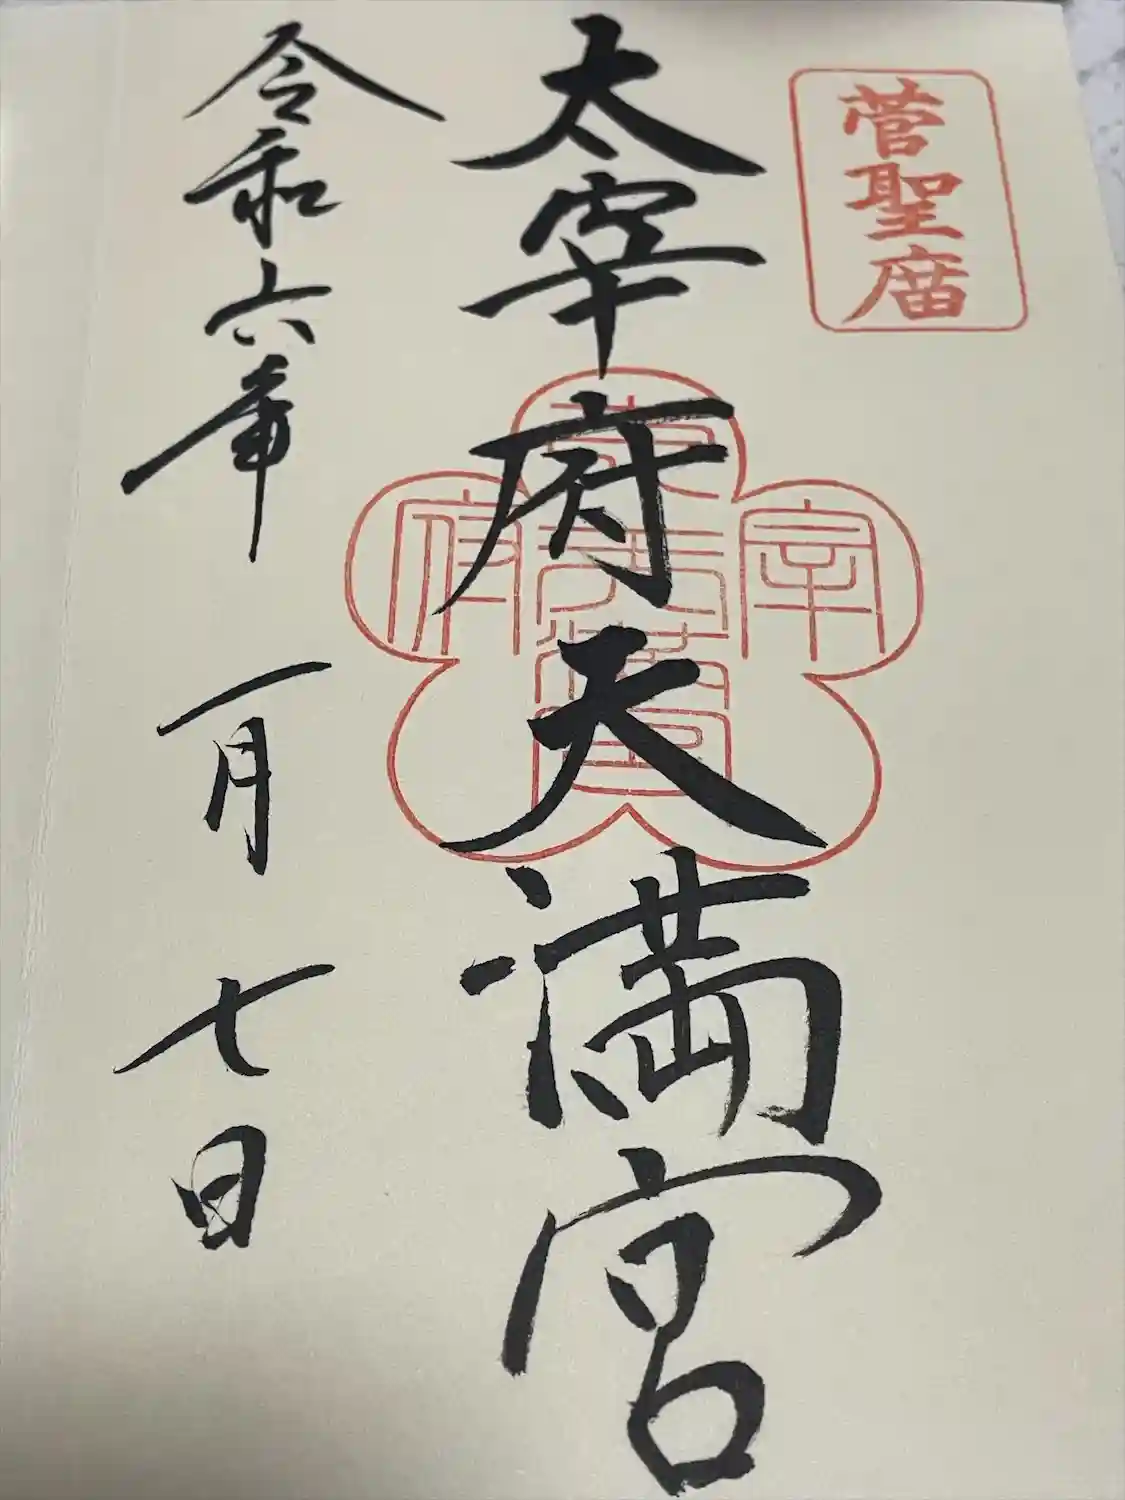 菅聖庿
太宰府天満宮
令和六年 一月 七日
宰
府